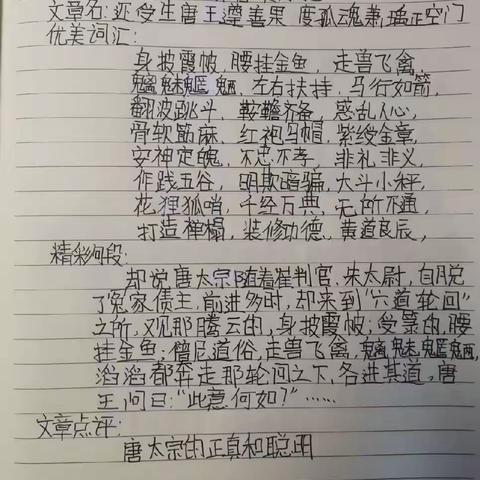 文章名:还受生唐王遵善果 度孤魂萧瑀正空门
优美词汇:
身披霞帔,腰挂金鱼,走兽飞禽,
魑魅魍魉,左右扶持,马行如箭,
翻波跳斗,鞍韂齐备,惑乱人心,
骨软筋麻,红袍乌帽,紫绶金章,
安神定魄,不忠不孝,非礼非义,
作践五谷,明欺暗骗,大斗小秤,
花狸狐哨,千经万典,无所不通,
打造禅榻,装修功德,黄道良辰,
精彩句段:
却说唐太宗随着崔判官、朱太尉,自脱
了冤家债主,前进多时,却来到“六道轮回”
之所,又见那腾云的,身披霞帔;受箓的,腰
挂金鱼;僧尼道俗,走兽飞禽,魑魅魍魉,
滔滔都奔走那轮回之下,各进其道。唐
王问曰:“此意何如?”……
文章点评:
唐太宗的正真和聪明